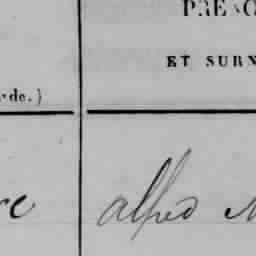 PRÉNO
ET SURN
de.)
re alfred